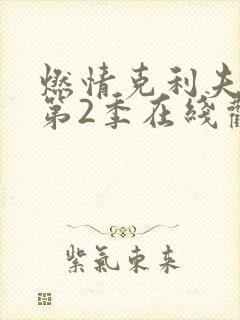 燃情克利夫
第2季在线
紫氣東来